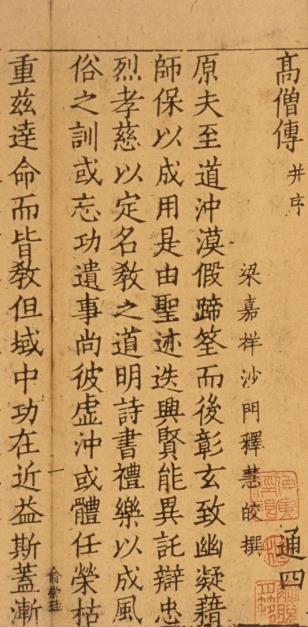 髙僧傳 并序 通四
梁嘉祥沙門釋慧皎撰
原夫至道沖漠假蹄筌而後彰玄致幽凝藉
師保以成用是由聖迹迭興賢能異託辯忠
烈孝慈以定名教之道明詩書禮樂以成風
俗之訓或忘功遺事尚彼虚沖或體任榮枯
重兹達命而皆教但域中功在近益斯蓋漸